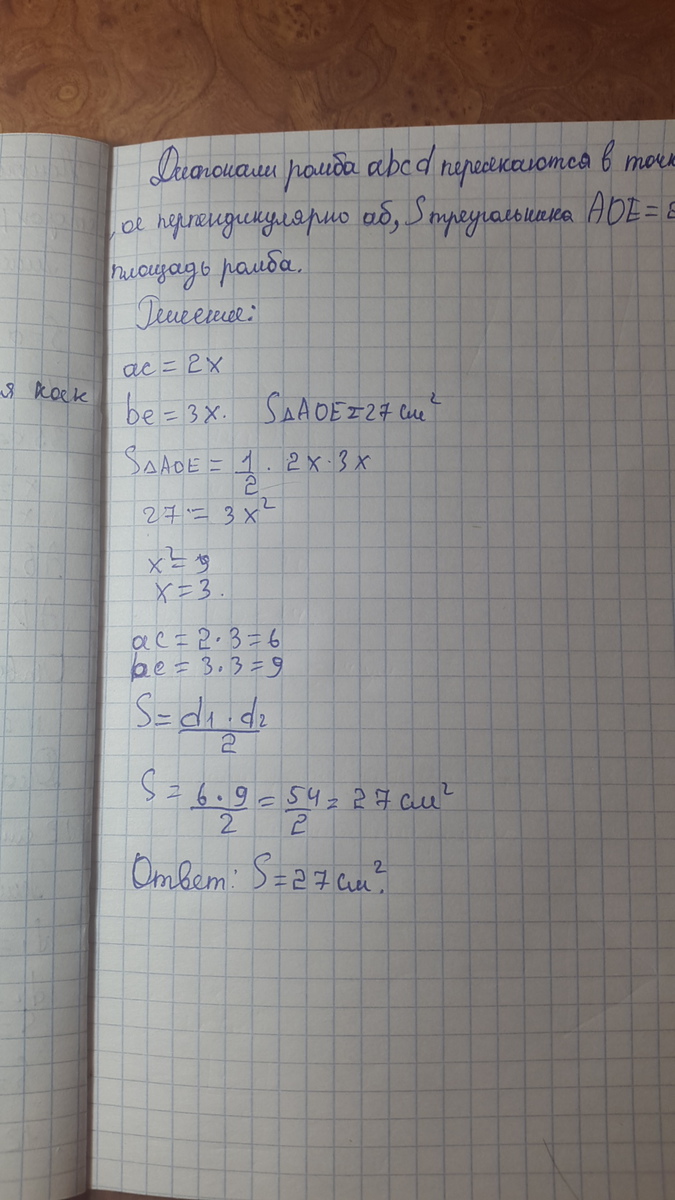 Диагонали ромба abcd пересекаются в точк
, ое перпендикулярно аб, S треугольника AOE =
площадь ромба.
Решение:
ac = 2x
я
be = 3x. S△AOE = 27 см²
S△AOE = 1/2 · 2x · 3x
27 = 3x²
x² = 9
x = 3.
ac = 2 · 3 = 6
be = 3 · 3 = 9
S = d1 · d2 / 2
S = 6 · 9 / 2 = 54 / 2 = 27 см²
Ответ: S = 27 см².